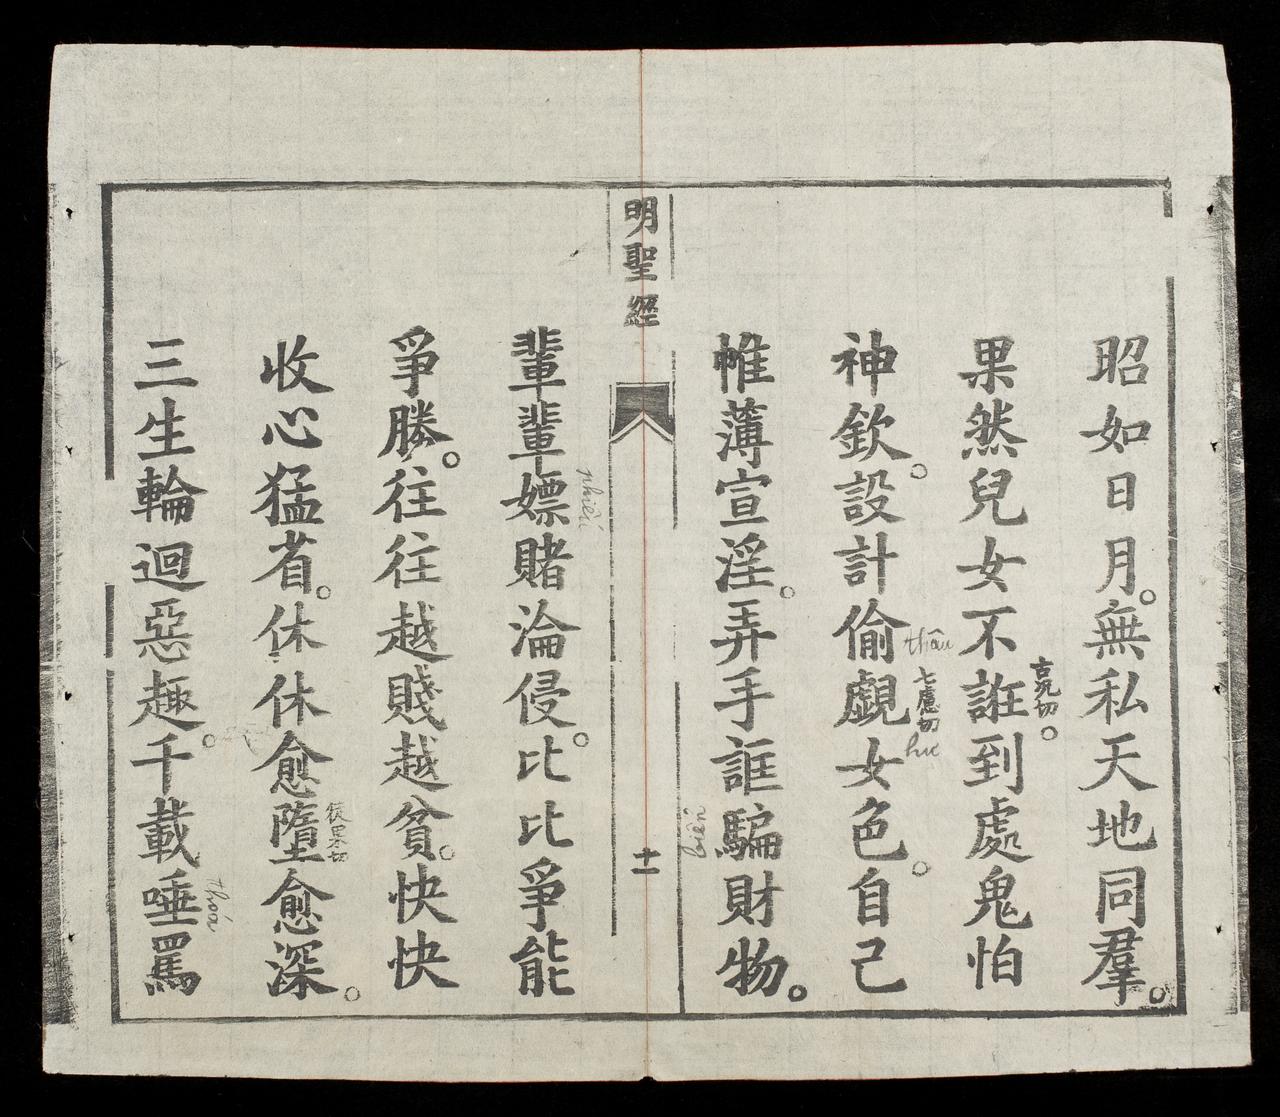 昭如日月。無私天地同羣。
果然兒女不誑。到處鬼怕
古况切
神欽。設計偷覷女色。自己
thâu
七慮切
hư
帷薄宣淫。弄手誆騙財物。
biển
明聖經
十一
輩輩嫖賭淪侵。比比爭能
爭勝。往往越賤越貧。快快
收心猛省。休休愈墮愈深。
徒果切
三生輪迴惡趣。千載唾罵
thoá